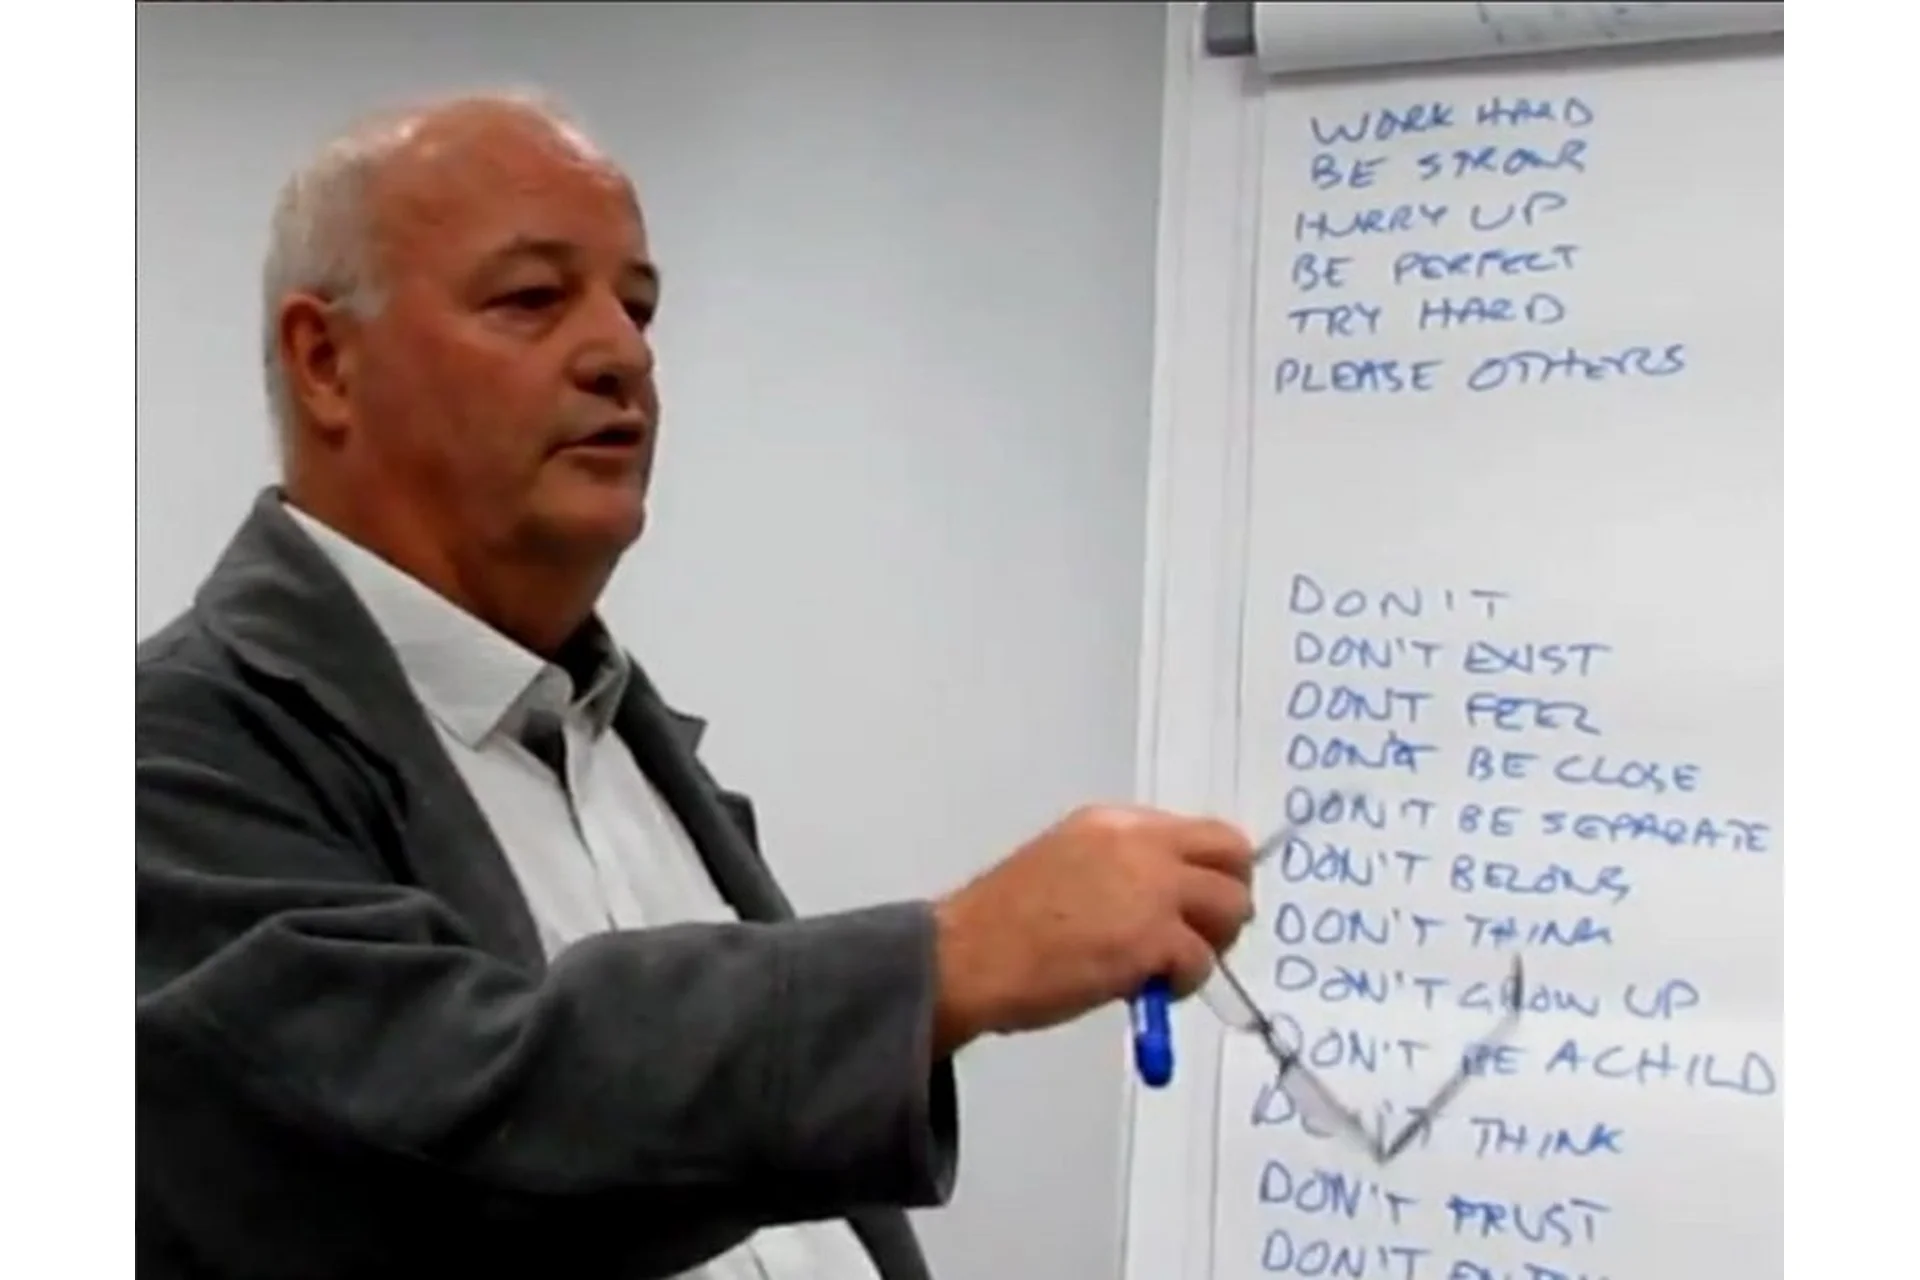 WORK HARD
BE STRONG
HURRY UP
BE PERFECT
TRY HARD
PLEASE OTHERS
DON'T
DON'T EXIST
DON'T FEEL
DON'T BE CLOSE
DON'T BE SEPARATE
DON'T BELONG
DON'T THINK
DON'T GROW UP
DON'T BE A CHILD
DON'T THINK
DON'T TRUST
DON'T